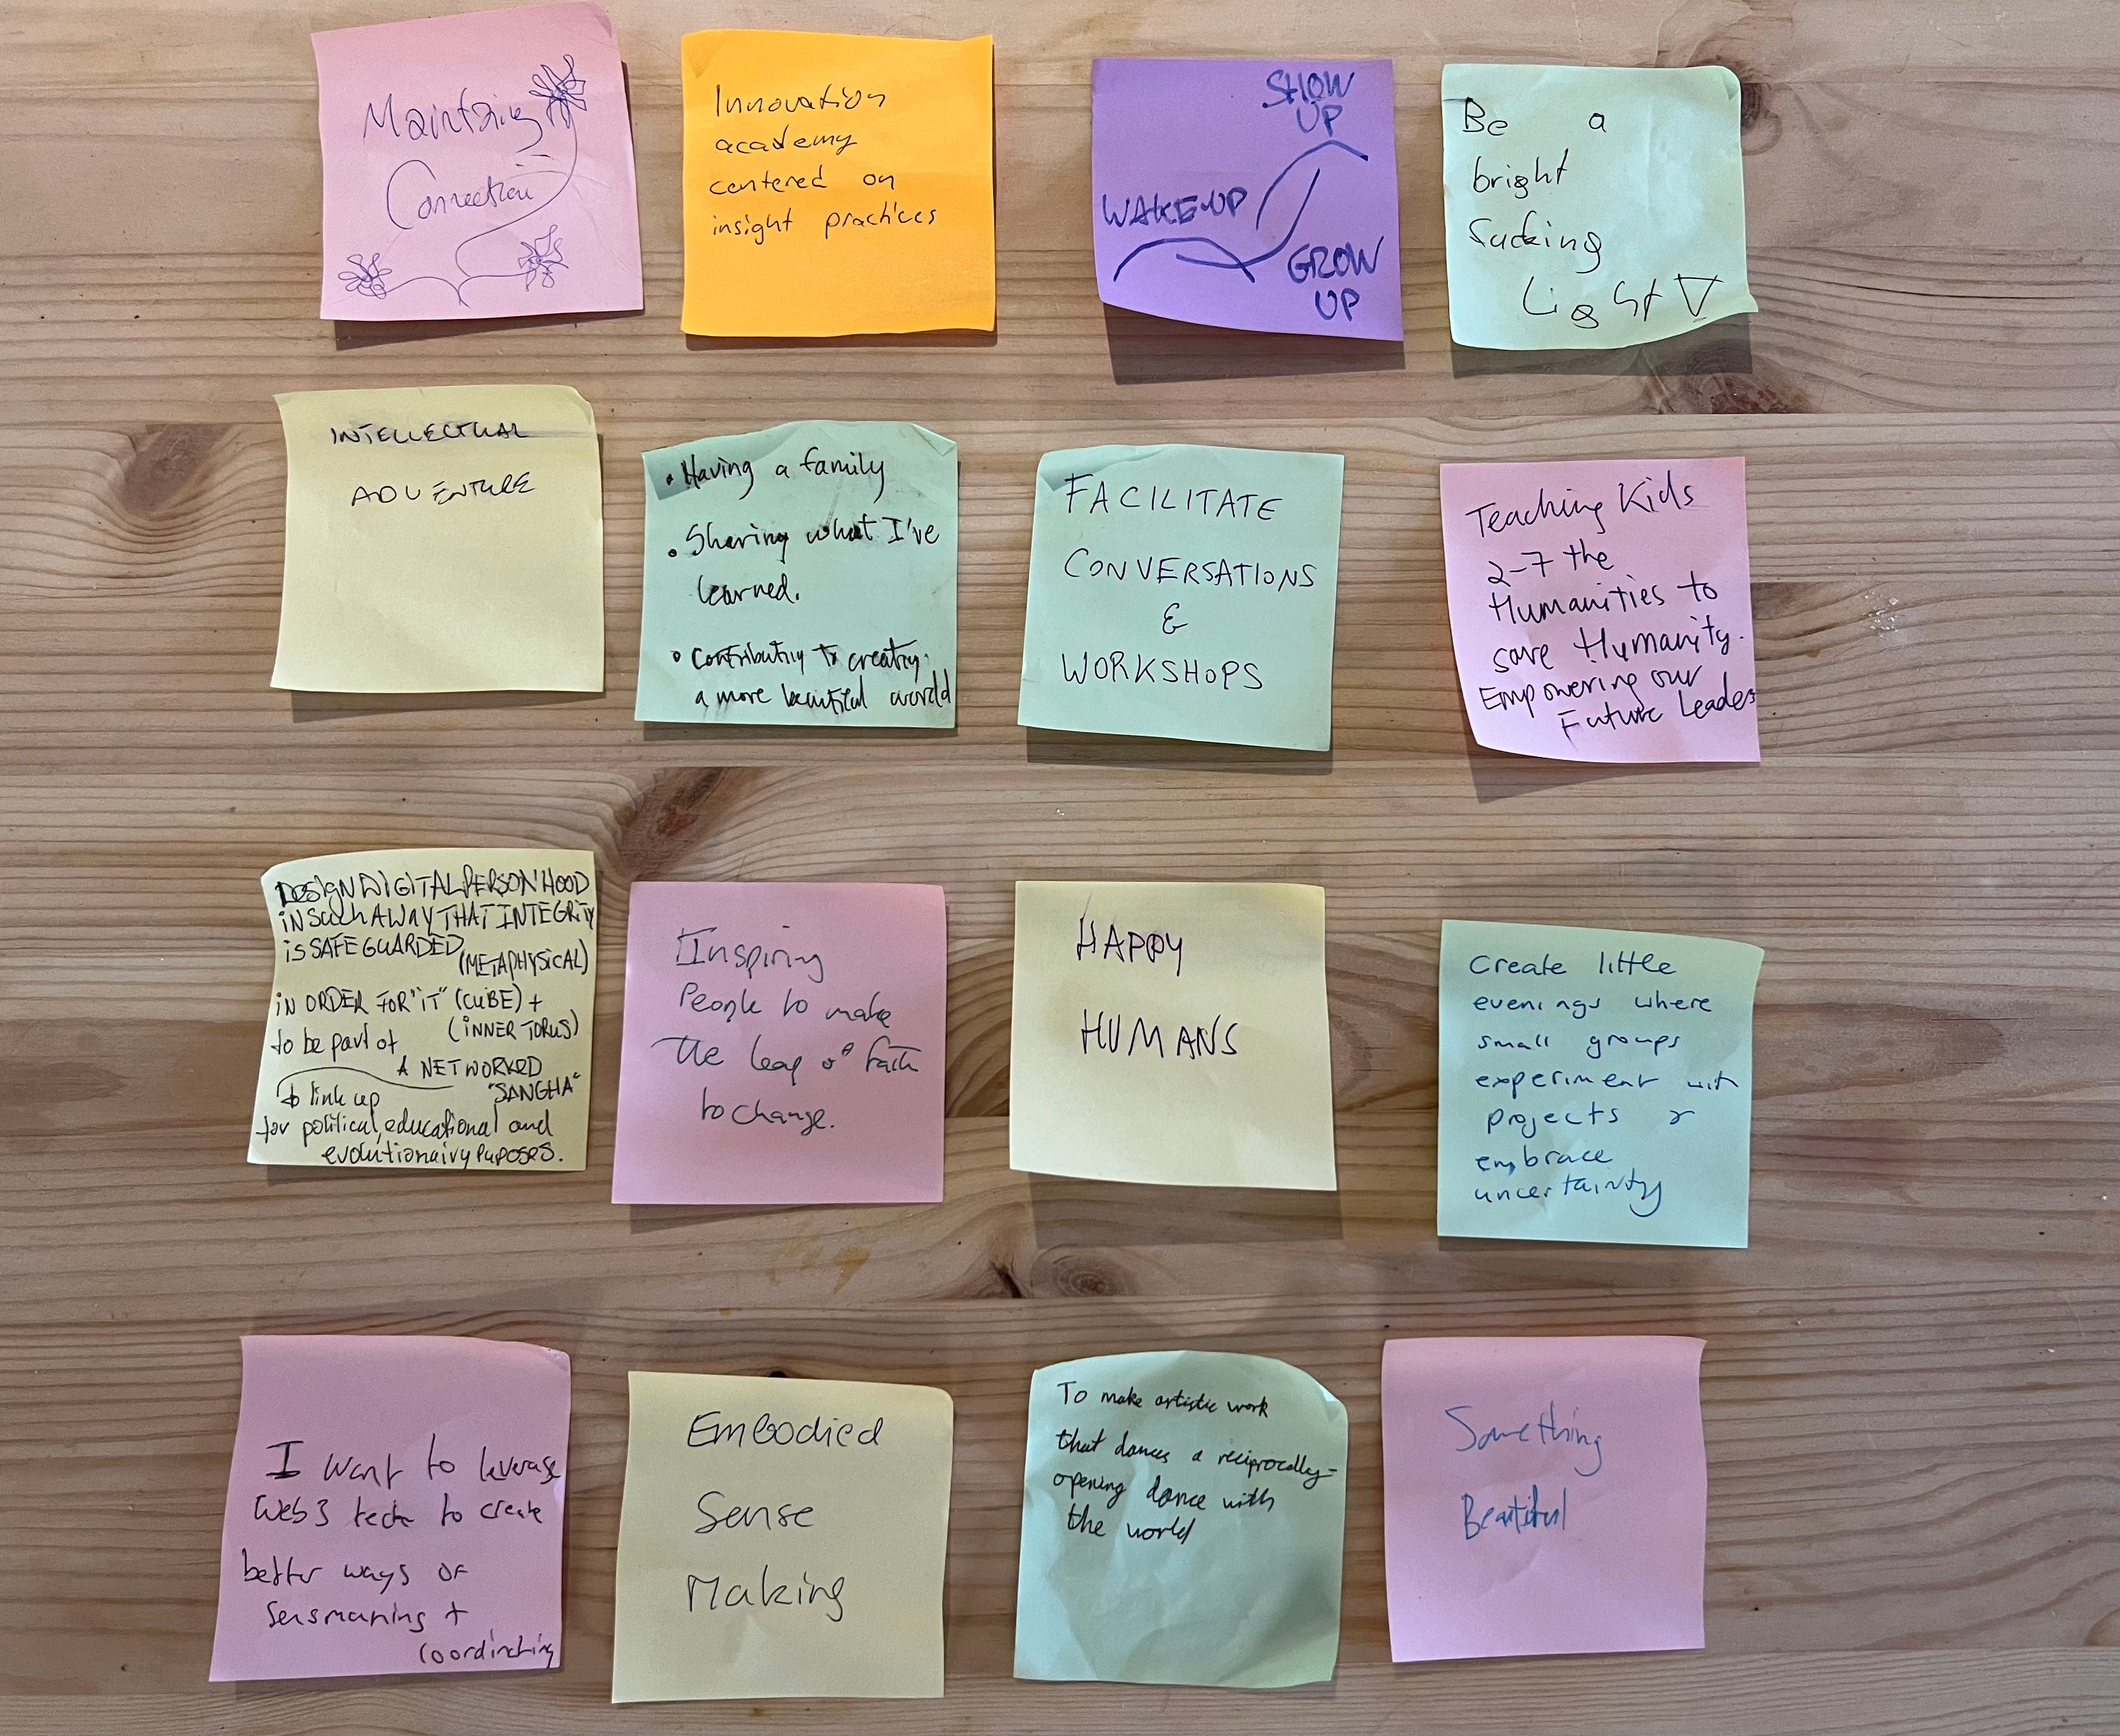 Maintaing
Connection
Innovation
academy
centered on
insight practices
SHOW
UP
WAKE-UP
GROW
UP
Be a
bright
Light
INTELLECTUAL
ADVENTURE
• Having a family
• Sharing what I've
learned.
• Contributing to creating
a more beautiful world
FACILITATE
CONVERSATIONS
&
WORKSHOPS
Teaching Kids
2-7 the
Humanities to
save Humanity.
Empowering our
Future Leaders
DESIGN DIGITAL PERSONHOOD
IN SUCH A WAY THAT INTEGRITY
IS SAFEGUARDED
(METAPHYSICAL)
IN ORDER FOR "IT" (CUBE) +
(INNER TORUS)
to be part of
A NETWORKED
"SANGHA"
to link up
for political, educational and
evolutionairy puposes.
Inspiring
People to make
the leap of faith
to change.
HAPPY
HUMANS
Create little
evenings where
small groups
experiment with
projects &
embrace
uncertainty
I want to leverage
Web3 tech to create
better ways of
+
Embodied
Sense
Making
To make artistic work
that dances a reciprocally-
opening dance with
the world
Something
Beautiful